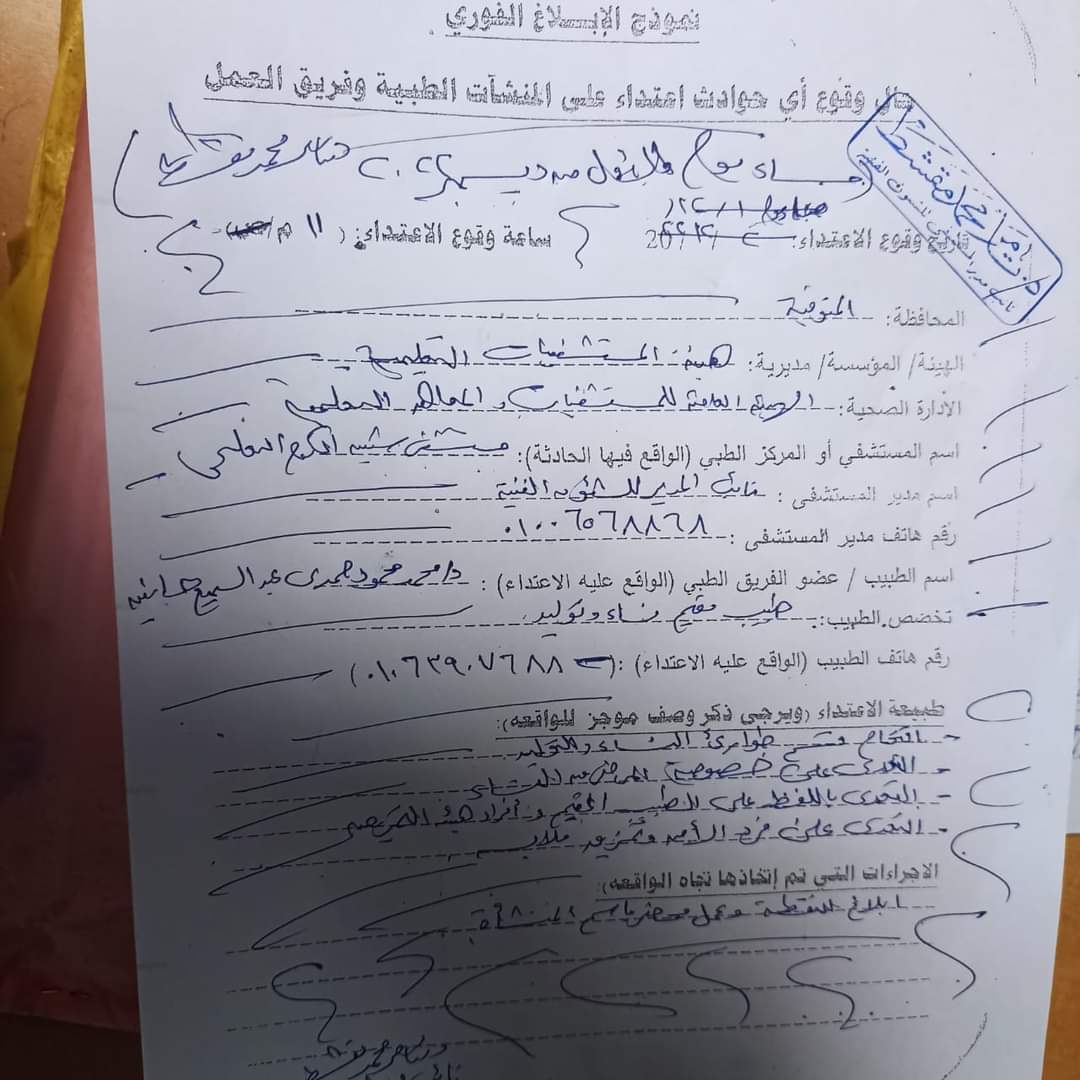 نموذج الإبلاغ الفوري
حال وقوع أي حوادث اعتداء على المنشآت الطبية وفريق العمل
مساء يوم الأول من ديسمبر ٢٠٢٢
تاريخ وقوع الاعتداء: ساعة وقوع الاعتداء: ( ١١ م/
المحافظة: المنوفية
الهيئة/ المؤسسة/ مديرية: هيئة المستشفيات التعليمية
الأدارة الصحية: الهيئة العامة للمستشفيات و المعاهد التعليمية
اسم المستشفي أو المركز الطبي (الواقع فيها الحادثة): مستشفى شبين الكوم التعليمى
اسم مدير المستشفى : نائب المدير للشئون الفنية
رقم هاتف مدير المستشفى : ٠١٠٠٦٥٦٨٨٦٨
اسم الطبيب / عضو الفريق الطبي (الواقع عليه الاعتداء) : د/ محمد محمود حمدى عبد السميع
تخصص الطبيب: طبيب مقيم نساء وتوليد
رقم هاتف الطبيب (الواقع عليه الاعتداء) : (٠١٠٦٣٩٠٧٦٨٨)
طبيعة الاعتداء (ويرجى ذكر وصف موجز للواقعه):
- اقتحام قسم طوارئ النساء والتوليد
- التعدى على خصوصية المرضى من النساء
- التعدى باللفظ على الطبيب المقيم و أفراد هيئة التمريض
- التعدى على فرد الأمن وتمزيق ملابسه
الاجراءات التي تم إتخاذها تجاه الواقعه:
ابلاغ النقطة وعمل محضر باسم المنشأة